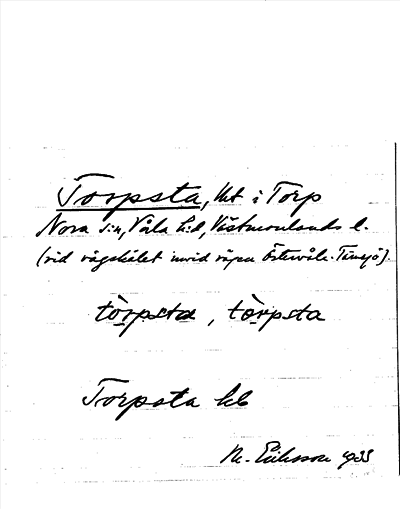 Torpsta, hmt i Torp
Nora s:n, Våla h:d, Västmanlands l.
(vid vägskälet invid vägen Östervåla-Tärnsjö).
tòrpsta, tòrpsta
Torpsta kb
M. Eriksson 1935